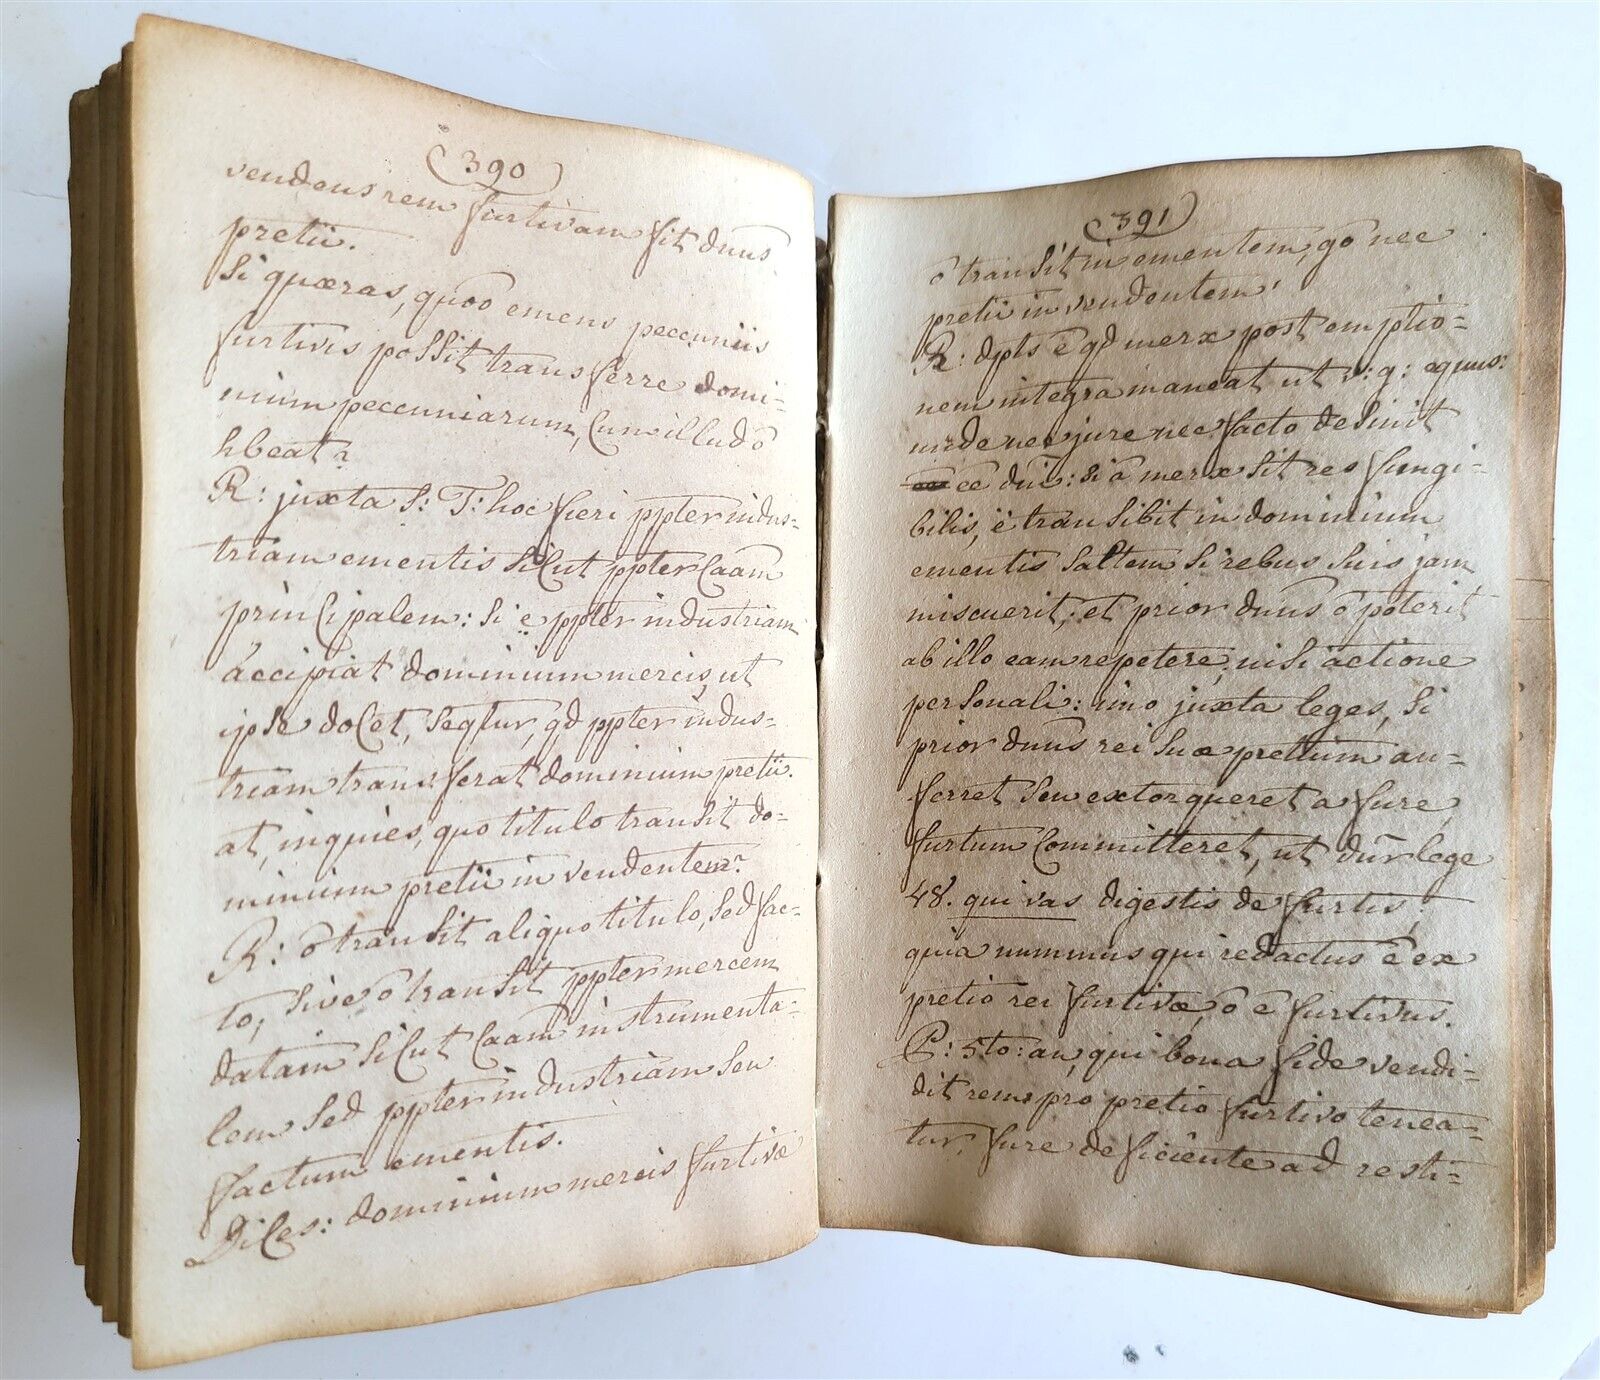 (390)
vendens rem furtivam fit dnus
pretii.
Si quæras, quoō emens pecuniis
furtivis possit transferre domi=
nium pecuniarum, Cum illud ō
hbeat?
R: juxta S: T: hoc fieri ppter indus=
triam ementis siCut ppter Caām
prinCipalem: Si e ppter industriam
accipiat dominium mercis, ut
ipse doCet, seqtur, qd ppter indus=
triam transferat dominium pretii.
at, inquies, quo titulo transit do=
minium pretii in vendentem?
R: ō transit aliquo titulo, sed fac=
to, sive ō transit ppter mercem
datam siCut Caām instrumenta=
lem sed ppter industriam seu
factum ementis.
DiCes: dominium mercis furtivæ
(391)
ō transit in ementem, gō nec
pretii in vendentem.
R: dpts ē qd merx post emptio=
nem integra maneat ut v: g: equus:
unde nec jure nec facto desinit
ēē dni: si ō merx sit res fungi=
bilis, ë transibit in dominium
ementis saltem si rebus suis jam
miscuerit; et prior dnus ō poterit
ab illo eam repetere, nisi actione
personali: imo juxta leges, si
prior dnus rei suæ pretium au=
ferret seu extorqueret a fure,
furtum Committeret, ut dūr lege
48. qui vas digestis de furtis;
quia nummus qui redactus ē ex
pretio rei furtivæ, ō ē furtivus.
P: 5to: an, qui bona fide vendi=
dit rem pro pretio furtivo tenea=
tur, fure deficiente ad resti=